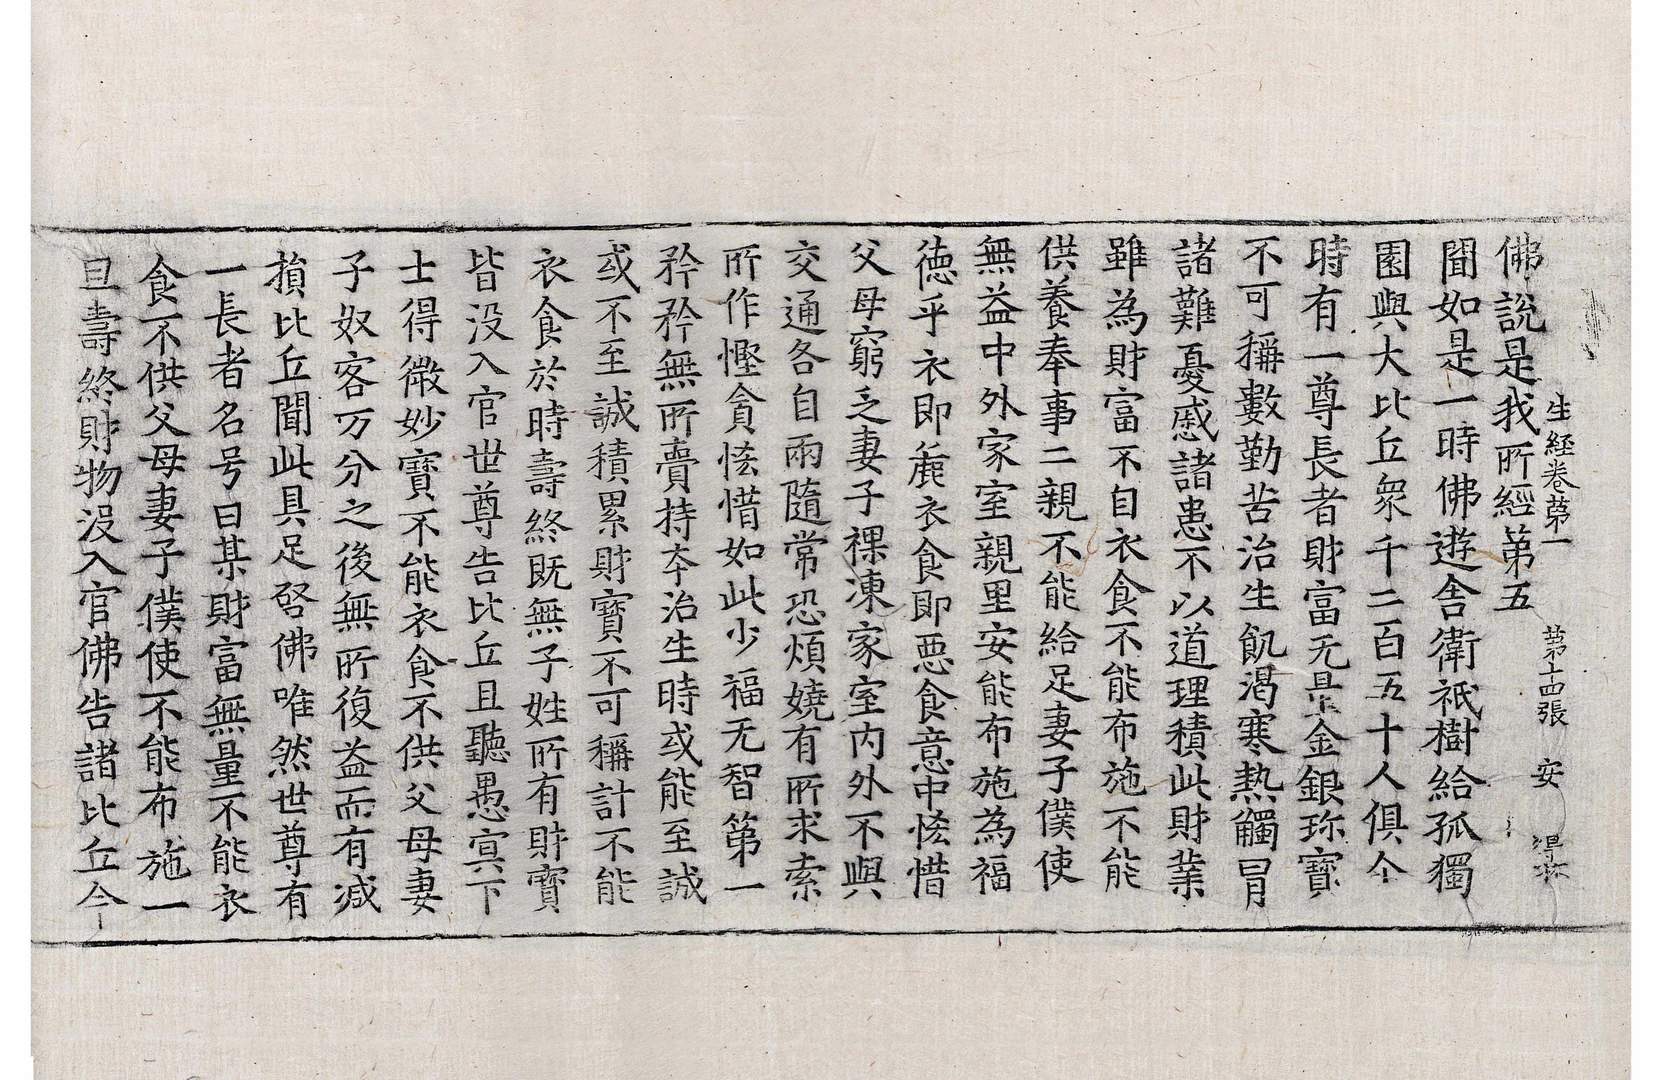 生經卷第一　第十四張　安
佛說是我所經第五
聞如是一時佛遊舍衛祇樹給孤獨
園與大比丘衆千二百五十人俱尒
時有一尊長者財富无量金銀珎寶
不可稱數勤苦治生飢渴寒熱觸冒
諸難憂慼諸患不以道理積此財業
雖為財富不自衣食不能布施不能
供養奉事二親不能給足妻子僕使
無益中外家室親里安能布施為福
德乎衣即麁衣食即惡食意中恡惜
父母窮乏妻子裸凍家室內外不與
交通各自兩隨常恐煩嬈有所求索
所作慳貪恡惜如此少福无智第一
矜矜無所賷持夲治生時或能至誠
或不至誠積累財寶不可稱計不能
衣食於時壽終既無子姓所有財寶
皆没入官世尊告比丘且聽愚冥下
士得微妙寶不能衣食不供父母妻
子奴客万分之後無所復益而有減
損比丘聞此具足啓佛唯然世尊有
一長者名号曰某財富無量不能衣
食不供父母妻子僕使不能布施一
旦壽終財物没入官佛告諸比丘今